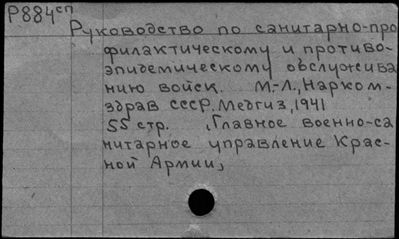 Р884сп
Руководство по санитарно-про
филактическому и противо-
эпидемическому обслужива
нию войск. М.-Л., Нарком-
здрав СССР, Медгиз, 1941
55 стр. , Главное военно-са
нитарное управление Крас-
ной Армии,